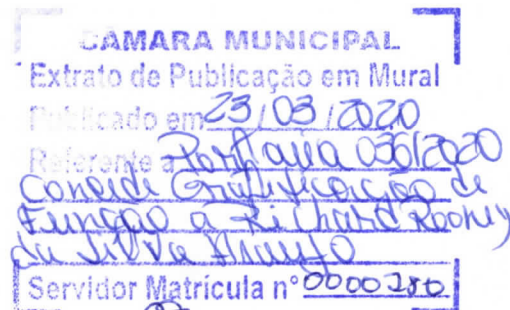 CÂMARA MUNICIPAL
Extrato de Publicação em Mural
Publicado em 23/03/2020
Referente a Portaria 036/2020
Concede Gratificação de
Função a Richard Rooney
da Silva Araujo
Servidor Matrícula nº 0000280